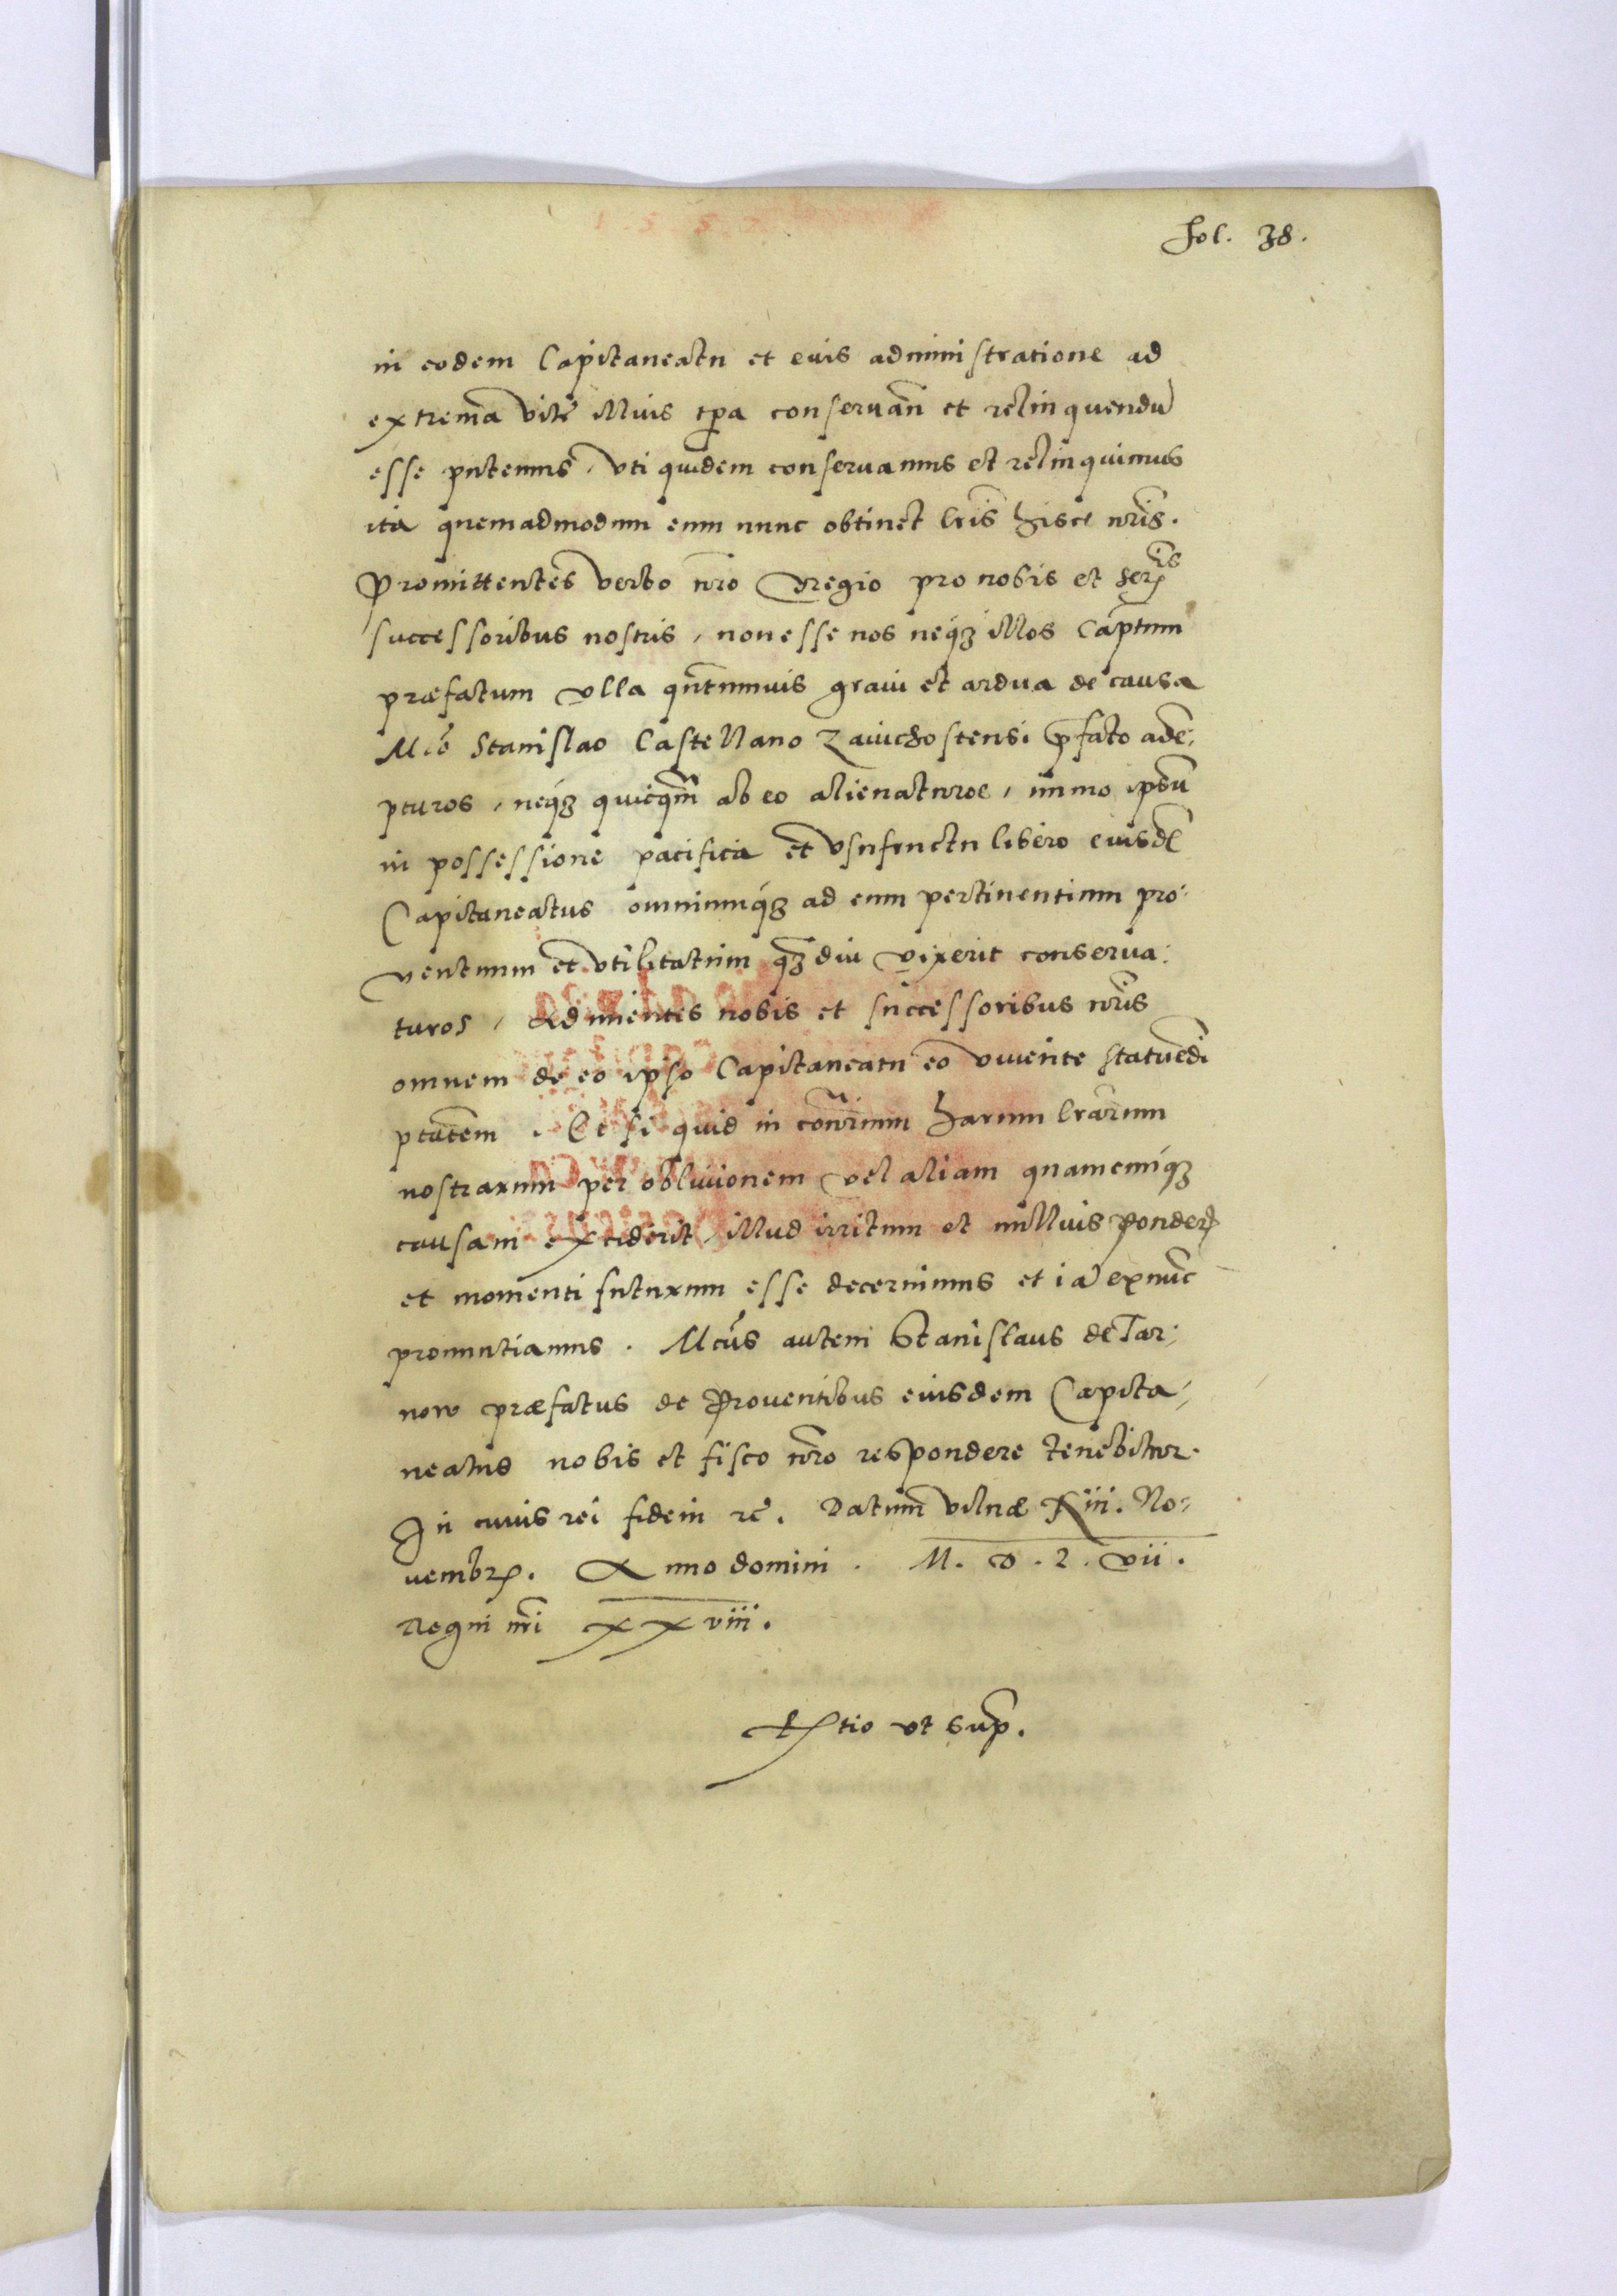 fol. 38.
in eodem Capitaneatu et eius administratione ad
extrema vitę illius tpa conseruan̄ et relinquendū
esse putemus, vti quidem conseruamus et relinquimus
ita quemadmodum eum nunc obtinet lris̄ hisce nris̄.
Promittentes verbo nr̄o Regio pro nobis et Seris
successoribus nostris, non esse nos neq́ꝫ illos Cap̄tum
præfatum vlla qn̄tumuis graui et ardua de causa
Mco Stanislao Castellano Zauichostensi p̄fato adē,
pturos, neq́ꝫ quicqm̄ ab eo alienaturos, immo ipsū
in possessione pacifica et vsufructu libero eiusdē
Capitaneatus omniumq́ꝫ ad eum pertinentium pro,
uentuum et vtilitatum qꝫdiu vixerit conserua,
turos, adimentes nobis et successoribus nris̄
omnem de eo ipso Capitaneatu eo viuente statuēdi
ptātem. Et si quid in contr̄rium harum lrārum
nostrarum per obliuionem vel aliam quamcumq́ꝫ
causam exciderit, illud irritum et nullius ponderꝭ
et momenti futurum esse decernimus et iā exnūc
pronuntiamus. Mcūs autem Stanislaus de Tar,
now præfatus de Prouentibus eiusdem Capita,
neatus nobis et fisco nr̄o respondere tenebitur.
In cuius rei fidem rc̄. Datum Vilnæ xiii. No,
uembrꝭ. Anno domini. M. D. L. vii.
Regni nr̄i xxviii.
Rtio vt sup̄.